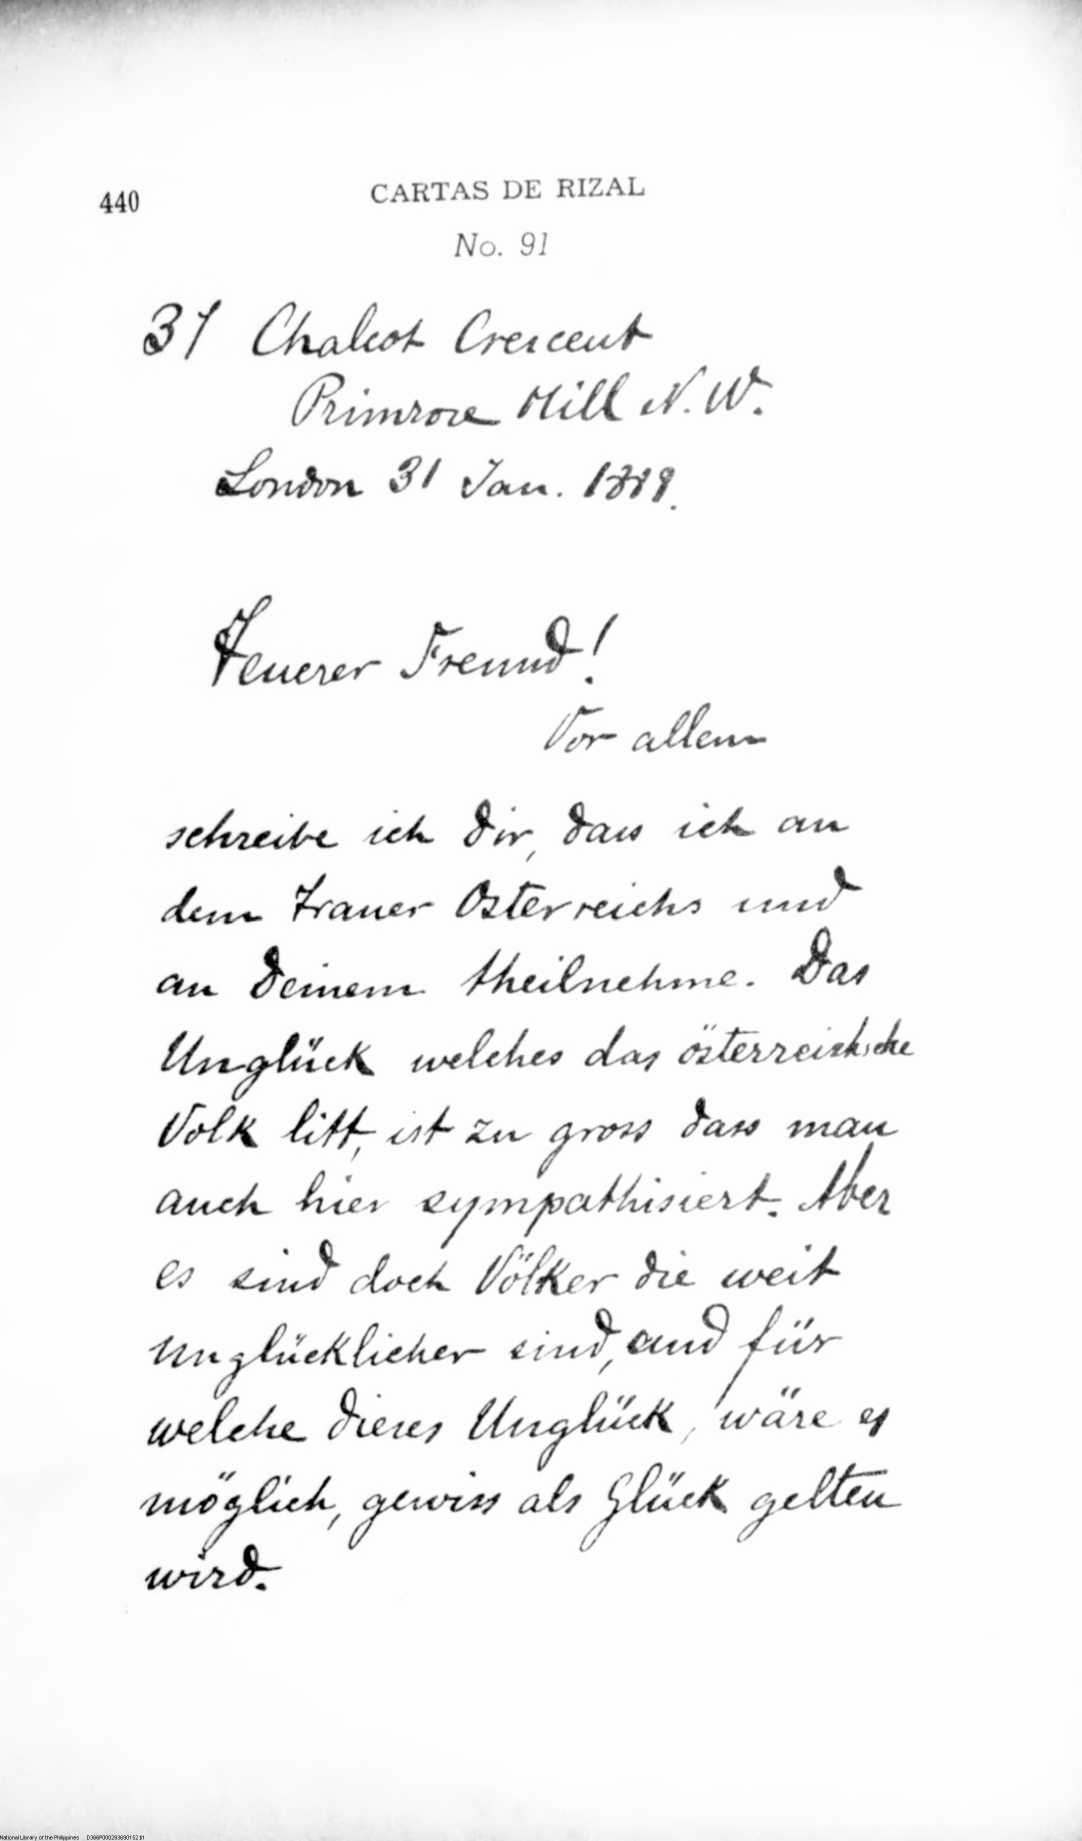 440
CARTAS DE RIZAL
No. 91
37 Chalcot Crescent
Primrose Hill N. W.
London 31 Jan. 1889.
Teuerer Freund!
Vor allem
schreibe ich dir, dass ich an
dem Trauer Osterreichs und
an Deinem theilnehme. Das
Unglück welches das österreichische
Volk litt, ist zu gross dass man
auch hier sympathisiert. Aber
es sind doch Völker die weit
unglücklicher sind, und für
welche dieses Unglück, wäre es
möglich, gewiss als Glück gelten
wird.
National Library of the Philippines